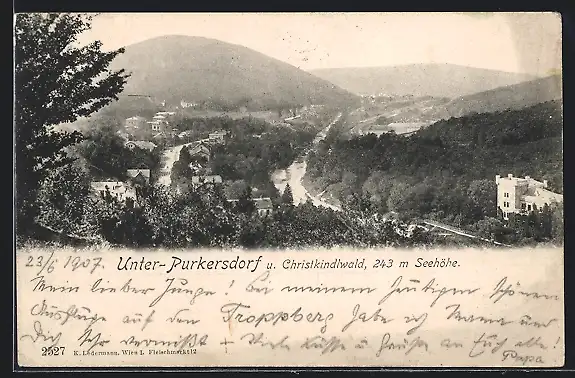 23/6 1907 Unter-Purkersdorf u. Christkindlwald, 243 m Seehöhe.
Mein lieber Junge! Bei meinem heutigen schönen
Ausfluge auf den Troppberg habe ich Mama und
Dich sehr vermißt + Viele Küsse u Grüße an Euch alle!
Papa
2527 K. Ledermann, Wien I. Fleischmarkt 12